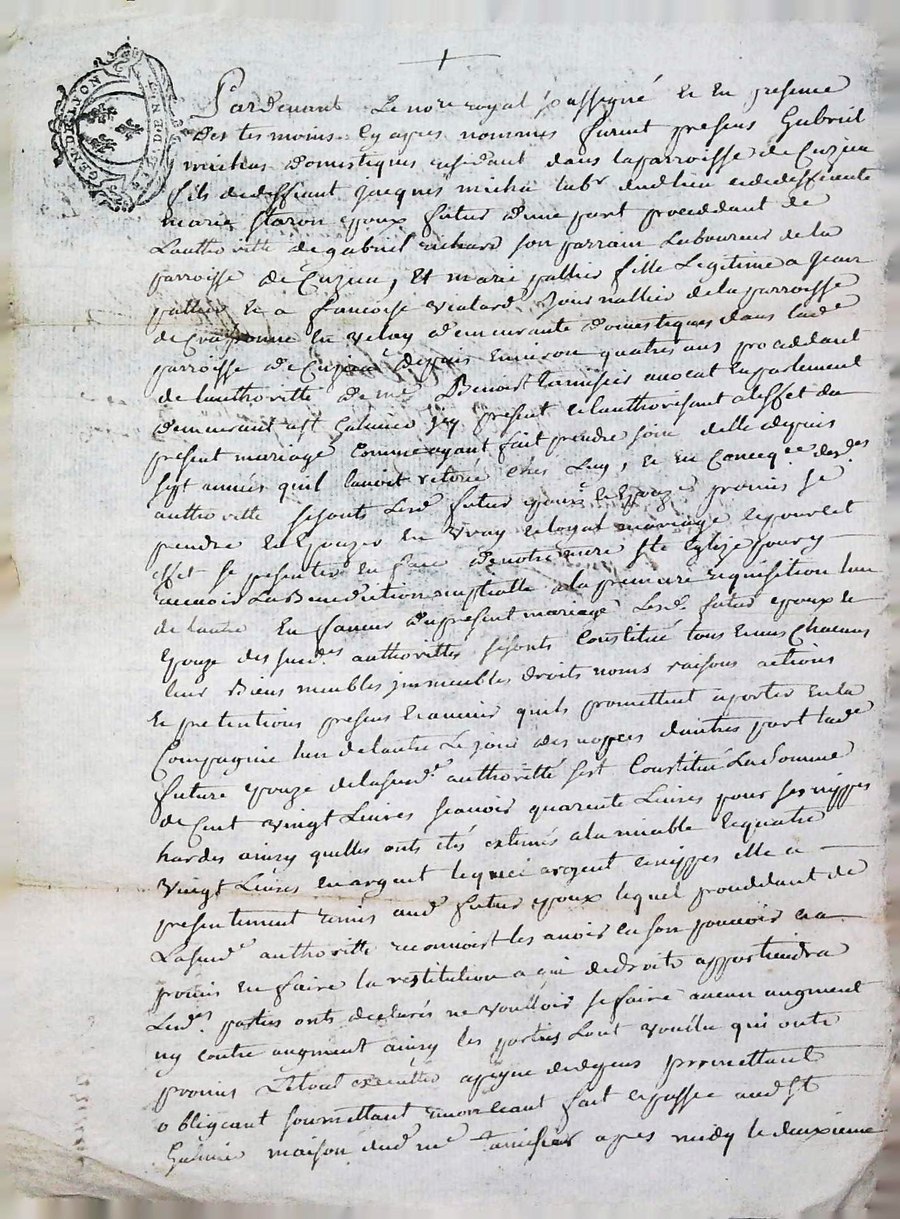 GEN. DE LYON
Pardevant Le nore royal soussigné et En presence
Des tesmoins Cy apres nommes furent presens Gabriel
michas domestiques residant dans la parroisse de Cuzieu
fils de deffunt jacques michas labr dud lieu et de deffunte
marie staron epoux futur d'une part proceddant de
Lauthoritté de gabriel richard son parrain Laboureur de la
parroisse de Cuzieu, Et marie pallier fille Legitime a Jean
pallier et a francoise vialard Journallier de la parroisse
de Craponne en velay demeurante domestiques dans lade
parroisse de Cuzieu depuis Environ quatres ans proceddant
de lauthoritté de me Benoist tamisier avocat En parlement
demeurant a st Galmier icy present et lauthorisant a leffet du
present mariage Comme ayant fait prendre soin delle depuis
sept années quil lavoit retirée chés Luy, et En Conceqce desdes
authorittés se sonts Lesd futur epoux et Epouze promis se
prendre et Epouzer en vray et loyal mariage et pour cet
effet se presenter en face de notre mere ste Eglize pour y
recevoir La Benediction nuptialle a la premiere requisition lun
de lautre En faveur du present mariage Lesd. futur epoux et
Epouze des susdes authorittés se sonts Constitué tous et uns Chacuns
leur Biens meubles immeubles droits noms raisons actions
et pretentions presens et avenir quils promettent aporter En la
Compagnie lun de lautre Le jour des nopces d'autres part lade
future epouze de la susde authoritté sest Constitué La Somme
de Cent vingt Livres scavoir quarente Livres pour ses nippes
hardes ainsy quelles onts étés estimés a lamiable et quatre
vingt Livres en argent lequel argent et nippes elle a
presentement remis aud futur epoux lequel proceddant de
La susde authoritté reconnoist les avoir en son pouvoir et a
promis En faire la restitution a qui de droits appartiendra
Lesdes parties onts declarés ne voulloir se faire aucun augment
ny contre augment ainsy les parties Lont voullu qui onts
promis Le tout executter a peyne de depens promettant
obligeant soumettant renonceant fait et passée aud St
Galmier maison dud me tamisier apres midy le deuxieme